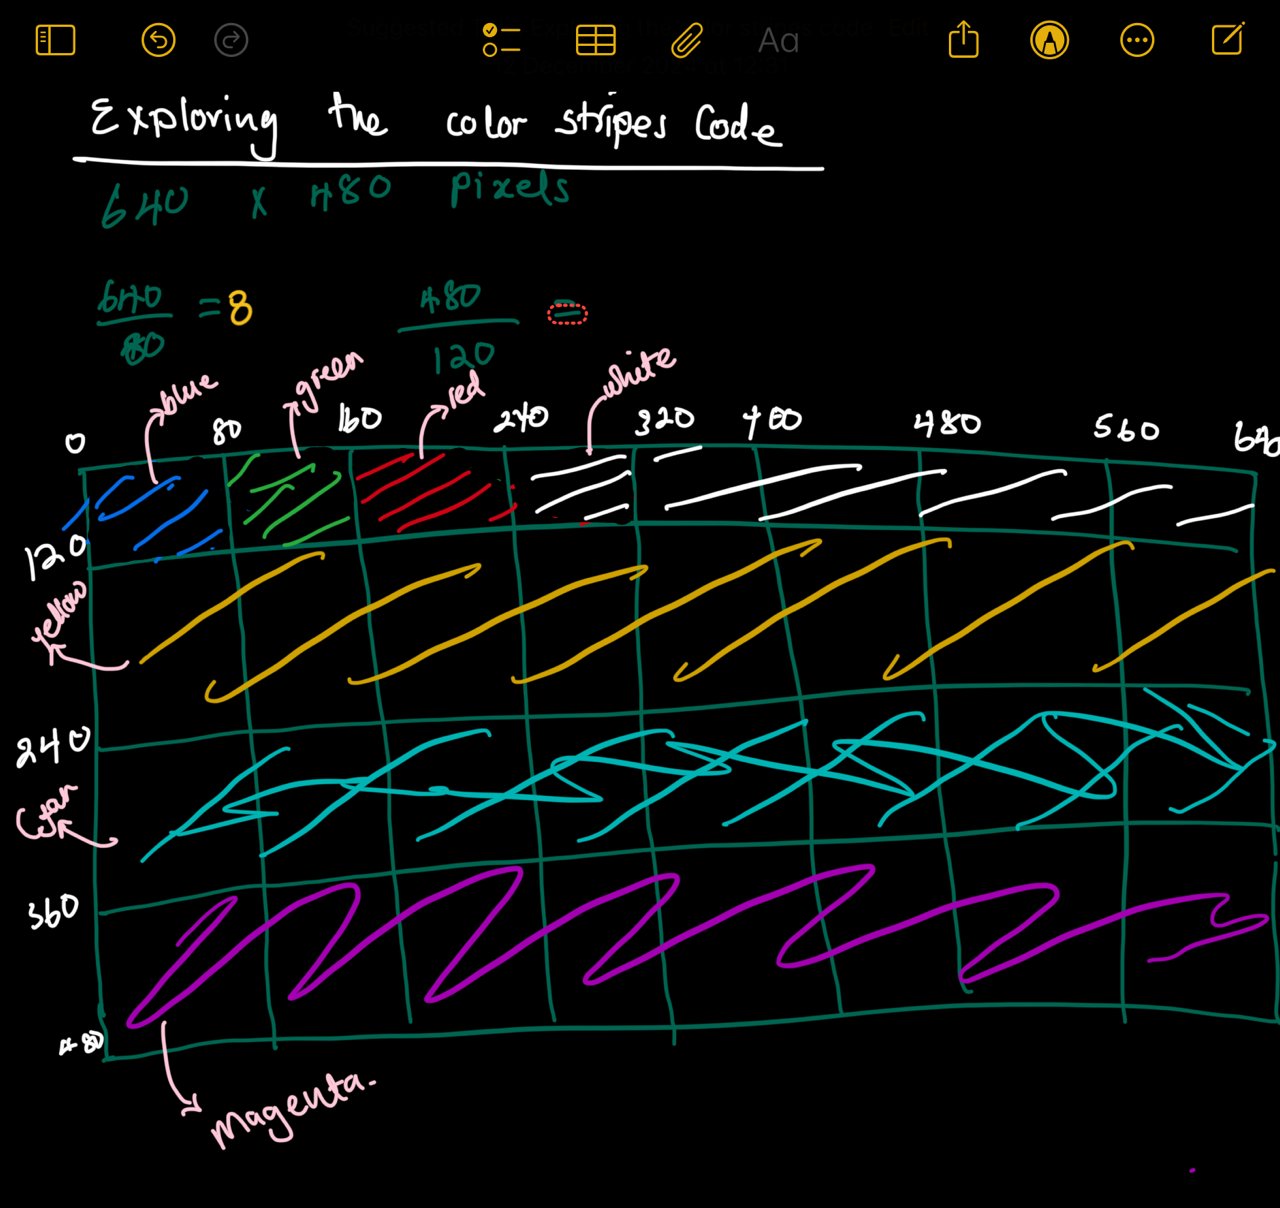 Aa
Exploring the color stripes Code
640 x 480 Pixels
640/80 = 8
480/120 =
blue
green
red
white
0 80 160 240 320 400 480 560 640
120
yellow
240
Cyan
360
480
magenta.